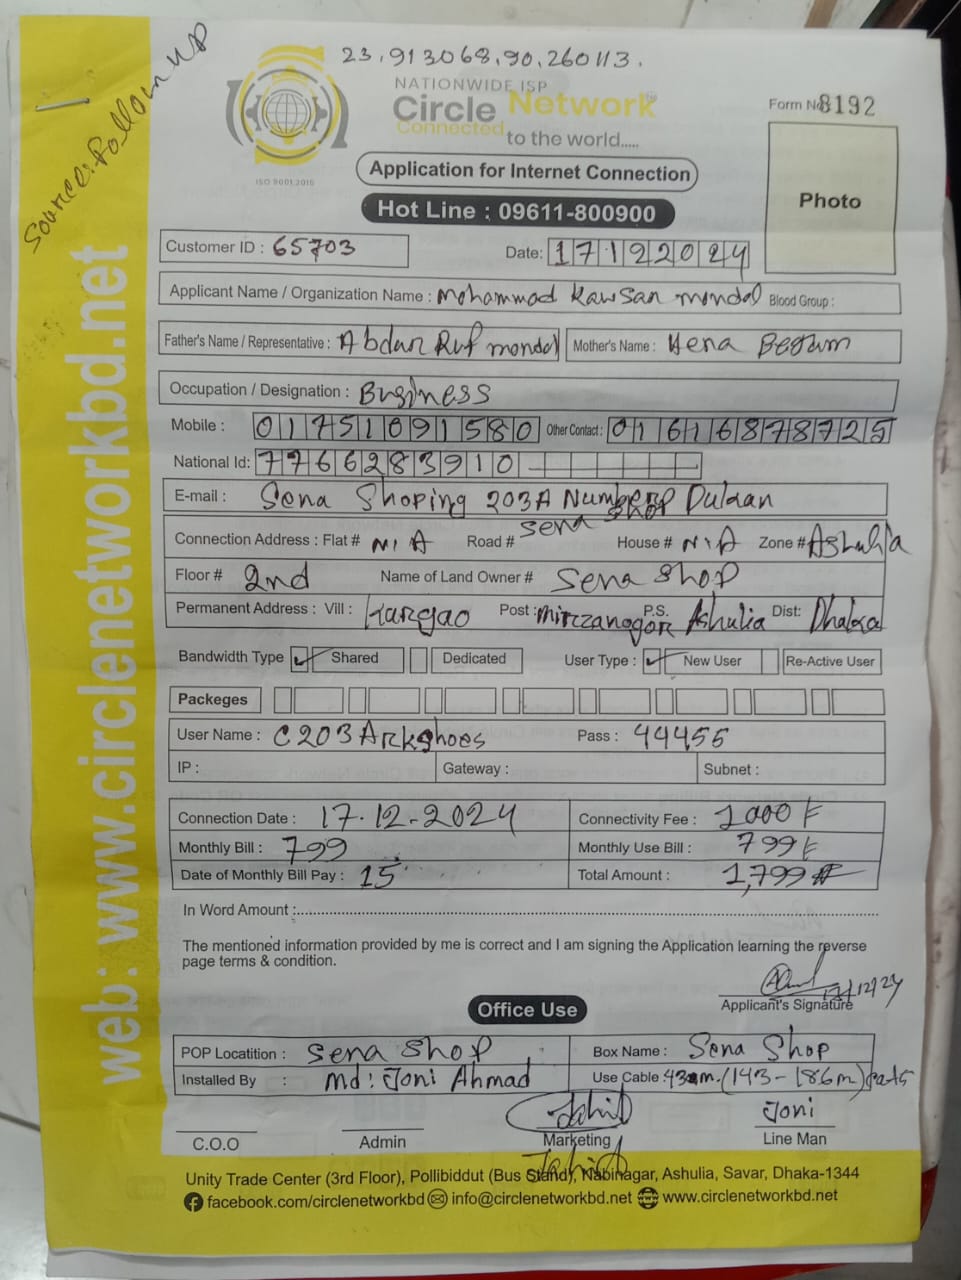 23.913068,90.260113.
Source: Follow up
NATIONWIDE ISP
Circle Network
Connected to the world.....
ISO 9001:2015
Form No 8192
Application for Internet Connection
Photo
Hot Line : 09611-800900
Customer ID : 65703 Date: 17122024
Applicant Name / Organization Name : Mohammad Kawsar mondol Blood Group :
Father's Name / Representative : Abdur Ruf mondol Mother's Name : Hena Begum
Occupation / Designation : Business
Mobile : 01751091580 Other Contact : 01616878725
National Id: 7766283910
E-mail : Sena Shoping 203A Number Dukan
Connection Address : Flat # N/A Road # Sena Shop House # N/A Zone # Ashulia
Floor # 2nd Name of Land Owner # Sena Shop
Permanent Address : Vill : Post : mirzanogor P.S. Ashulia Dist: Dhaka
Bandwidth Type Shared Dedicated User Type : New User Re-Active User
Packeges
User Name : C203Arkshoes Pass : 44455
IP : Gateway : Subnet :
Connection Date : 17-12-2024 Connectivity Fee : 1000
Monthly Bill : 799 Monthly Use Bill : 799
Date of Monthly Bill Pay : 15 Total Amount : 1,799
In Word Amount :
The mentioned information provided by me is correct and I am signing the Application learning the reverse
page terms & condition.
17/12/24
Applicant's Signature
Office Use
POP Locatition : Sena Shop Box Name : Sena Shop
Installed By : Md: Joni Ahmad Use Cable : 43m. (143-186m)
Jahid Joni
C.O.O Admin Marketing Line Man
Jahid
Unity Trade Center (3rd Floor), Pollibiddut (Bus Stand), Nabinagar, Ashulia, Savar, Dhaka-1344
facebook.com/circlenetworkbd info@circlenetworkbd.net www.circlenetworkbd.net
web: www.circlenetworkbd.net